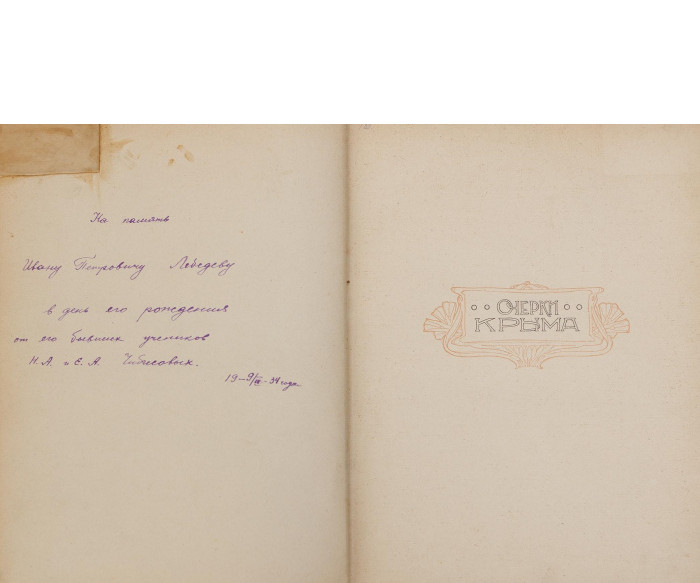 На память
Ивану Петровичу Лебедеву
в день его рождения
от его бывших учеников
Н. А. и Е. А. Чибисовых.
19–9/III–34 года
ОЧЕРКИ
КРЫМА